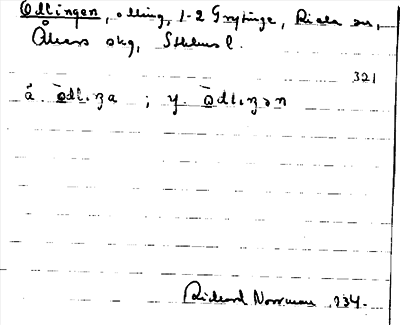 Odlingen, odling, 1-2 Grytinge, Riala sn,
Åkers skg, Sthlms l.
321
å. ọ̀dlıŋa ; y. ọ̀dlıŋən
Rickard Norrman 1934.